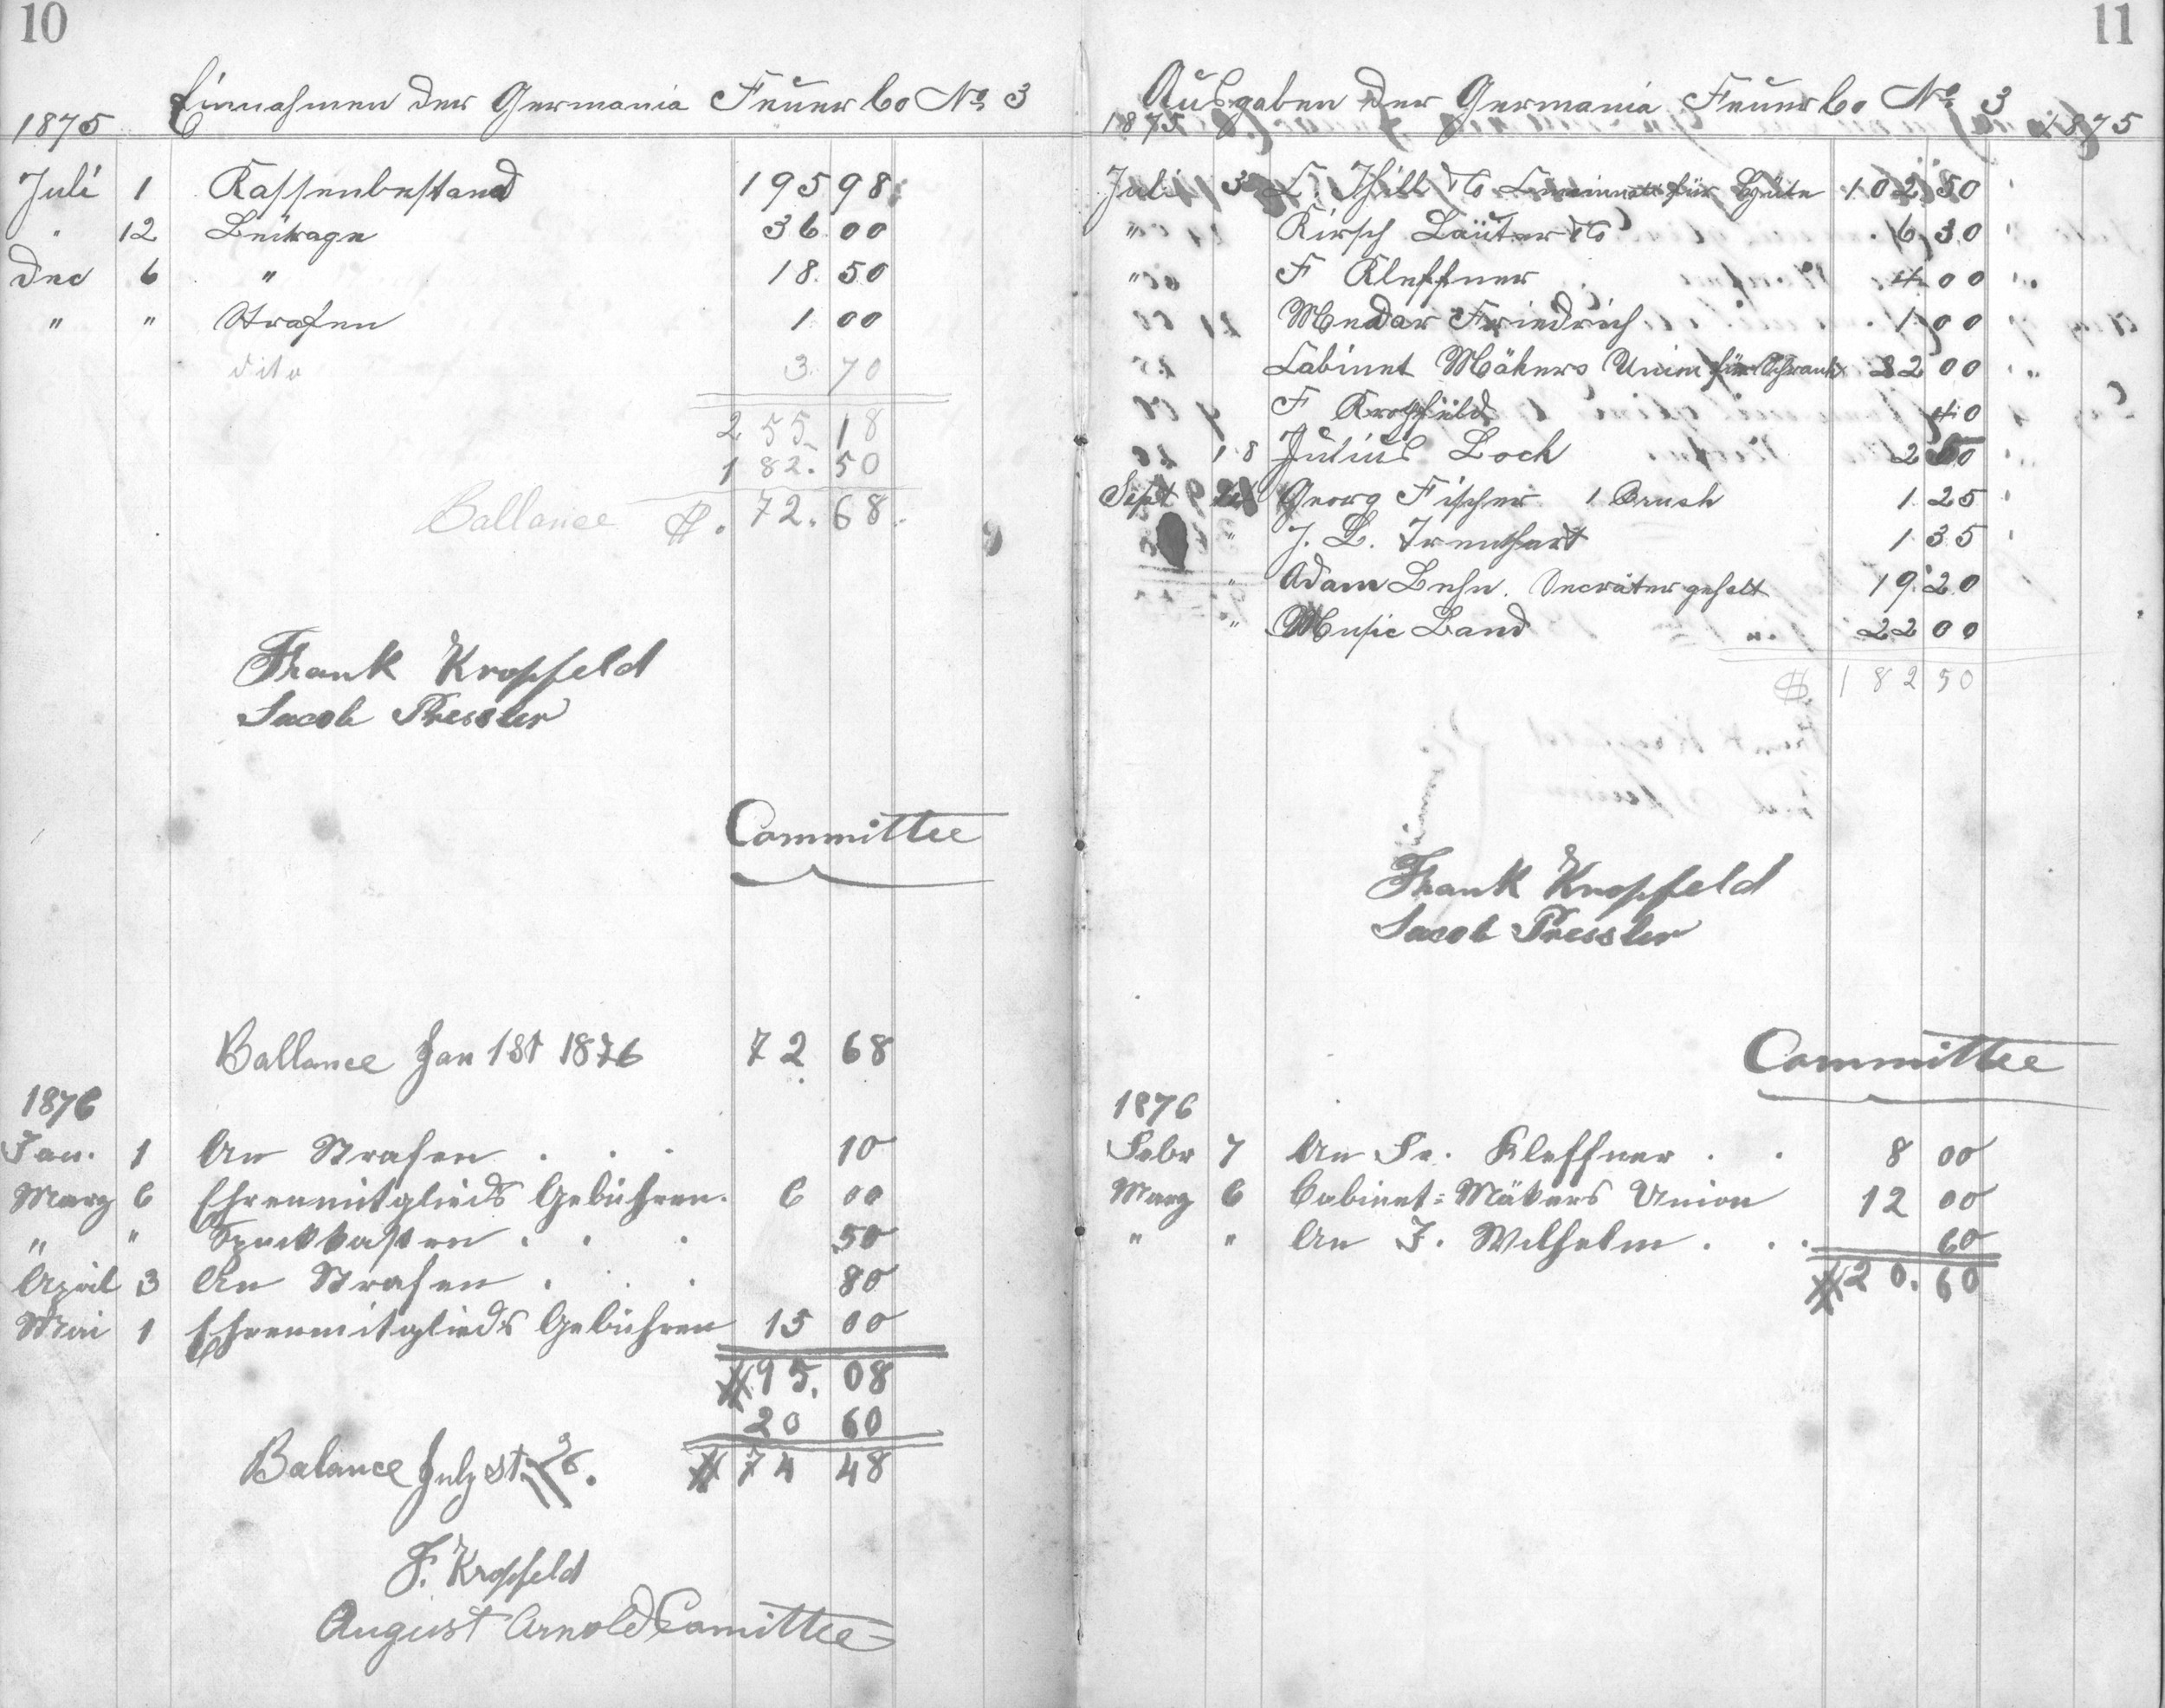 10
Einnahmen der Germania Feuer Co No 3
1875
Juli 1 Kassenbestand 195 98
" 12 Beitrage 36 00
Dec 6 " 18. 50
" " Strafen 1 00
dito 3. 70
255. 18
182. 50
Ballance $. 72. 68.
Frank Kropfeld
Jacob Pressler
Committee
Ballance Jan 1st 1876 72 68
1876
Jan. 1 An Strafen . . . 10
Marz 6 Ehrenmitglieds Gebühren. 6 00
" " Spuckkasten . . . 50
April 3 An Strafen . . . 80
Mai 1 Ehrenmitglieds Gebühren 15 00
$ 95. 08
20 60
Balance July st. 76. $ 74 48
F. Kropfeld
August Arnold Comittee
11
Ausgaben der Germania Feuer Co No. 3
1875 1875
Juli 3 Co für Hüte 102 50
" Kirsch Co 6 30
" F Kleffner 4 00
Medar Friedrich 1 00
Cabinet Mäkers Union für Schrank 22 00
F Kropfeld 40
18 Julius Loch 2 50
Sept Georg Fischer 1 Brush 1 25
" J. L. 1 35
" Adam Behn. Secretär gehalt 19 20
" Music Band 22 00
$. 182 50
Frank Kropfeld
Jacob Pressler
Committee
1876
Febr 7 An Fr. Kleffner . . 8 00
Marz 6 Cabinet=Mäkers Union 12 00
" " An F. Wilhelm . . . 60
$ 20. 60